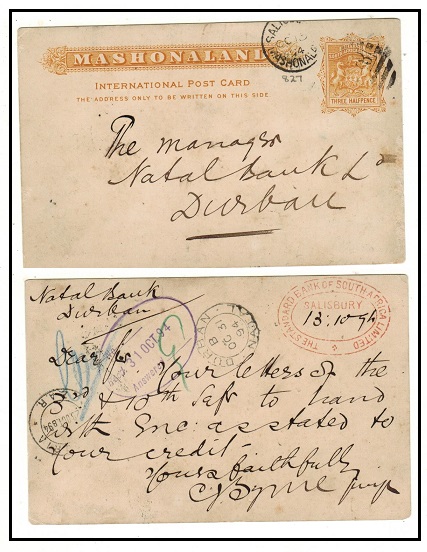 MASHONALAND
INTERNATIONAL POST CARD
THE ADDRESS ONLY TO BE WRITTEN ON THIS SIDE
THREE HALFPENCE
827
The Manager
Natal Bank Ld
Durban
Natal Bank
Durban
THE STANDARD BANK OF SOUTH AFRICA LIMITED
SALISBURY
13.10.94
DURBAN NATAL
OC 31
94
31 OCT 94
Answered
Dear Sir
Your letters of the
3rd & 10th Sept to hand
with Enc: as stated to
your credit
Yours faithfully